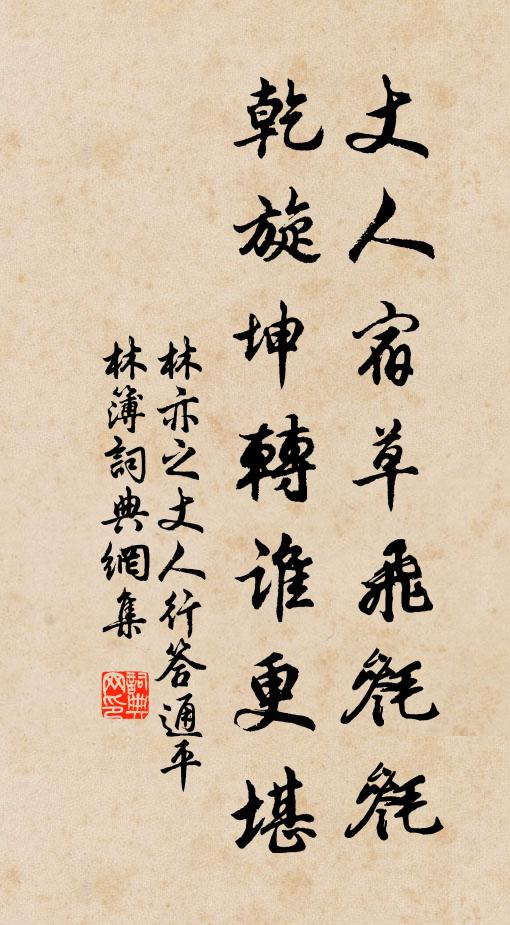 丈人宿草飛毿毿
乾旋坤轉誰更堪
林亦之丈人行答通平
林簿詞典網集
詞典网印